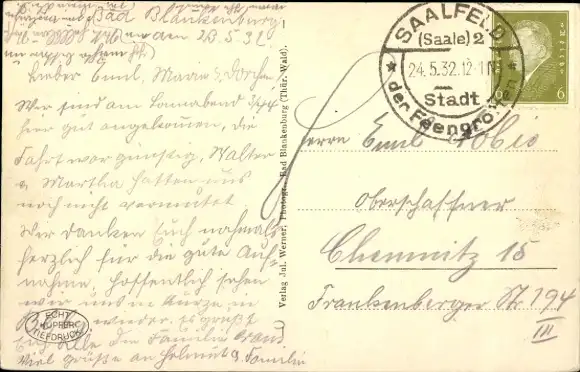 Bad Blankenburg
am 23.5.32
Lieber Emil, Marie & Dorchen
Wir sind am Sonnabend
hier gut angekommen, die
Fahrt war günstig, Walter
u. Martha hatten uns
noch nicht vermutet
Wir danken Euch nochmals
herzlich für die gute Auf-
nahme, hoffentlich sehen
wir uns in Kürze in
wieder. Es grüßt
Euch Alle die Familie
Viel grüße an Helmut & Familie
ECHT
KUPFER
TIEFDRUCK
Verlag Jul. Werner, Photogr., Bad Blankenburg (Thür. Wald).
SAALFELD
(Saale) 2
24.5.32.12-1 N
Stadt
der Feengrotten
6 6
Herrn Emil
Oberschaffner
Chemnitz 15
Frankenberger Str. 194
III